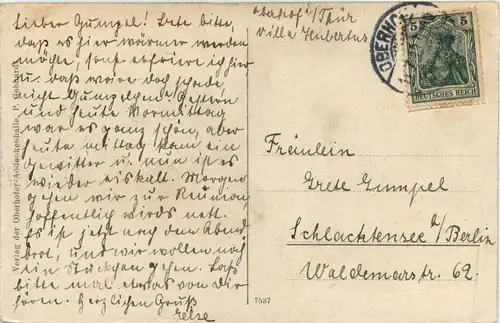 Lieber Gumpel! Bete bitte,
daß es hier wärmer werden
möchte, sonst erfriere ich hier
u. daß wäre doch schade
nicht Gumpelchen. Gestern
und heute Vormittag
war es ganz schön, aber
heute mittag kam ein
Gewitter u. nun ist es
wieder eiskalt. Morgen
gehen wir zur Reunion
hoffentlich wirds nett.
Es ist jetzt nach dem Abend
brot, und wir wollen noch
ein Stückchen gehen. Laß
bitte mal etwas von Dir
hören. Herzlichen Gruß
Else
Oberhof i/Thür
Villa Hubertus
OBERHOF
5 5
DEUTSCHES REICH
Fräulein
Grete Gumpel
Schlachtensee b/Berlin
Waldemarstr. 62.
Verlag der Oberhofer Andenkenhalle, P. Gebhardt
7537